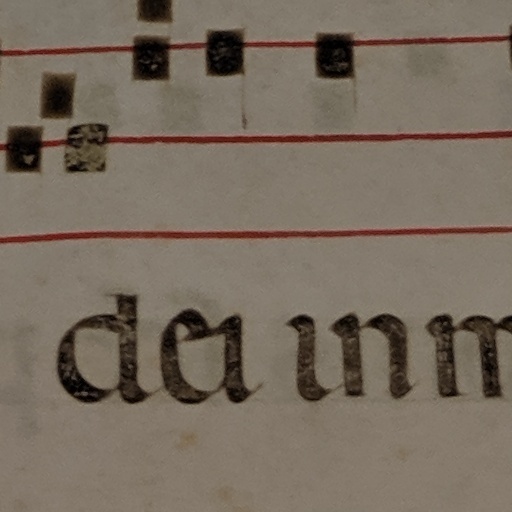 da inm